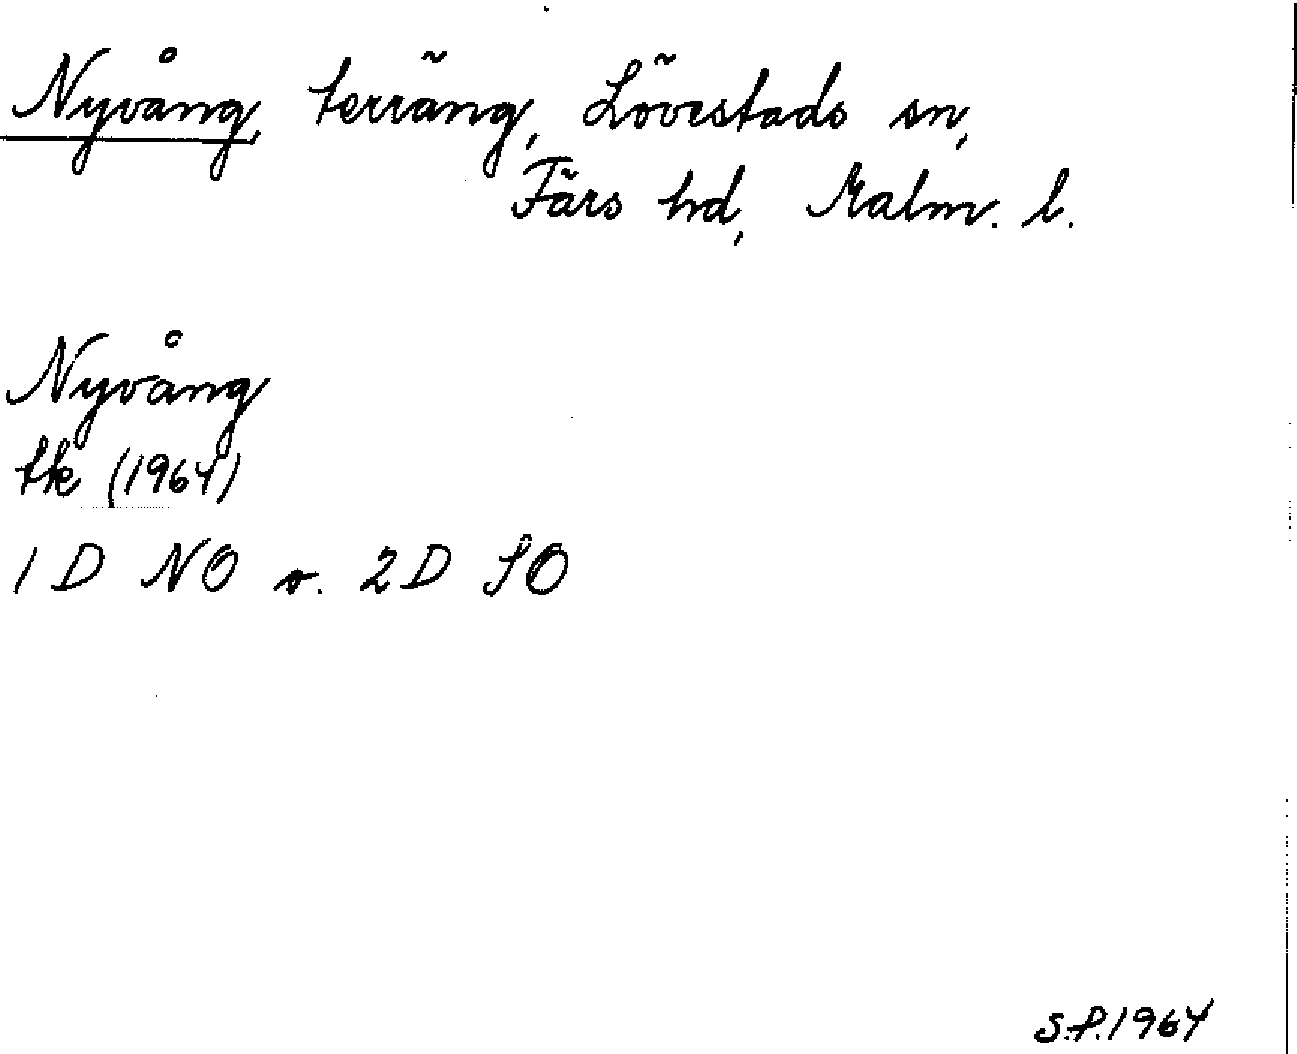 Nyvång, terräng, Lövestads sn,
Färs hd, Malm. l.
Nyvång
tk (1964)
1 D NO o. 2D SO
S.P. 1964